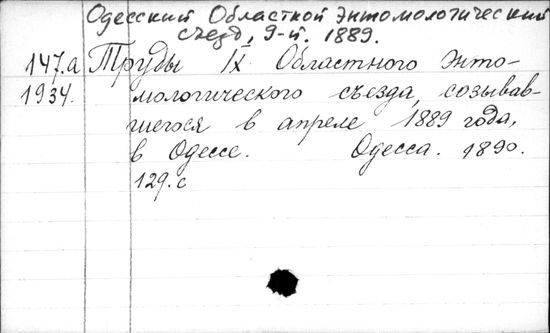 Одесский Областной Энтомологический
съезд, 9-й. 1889.
147.а Труды IX Областного Энто-
1934. мологического съезда, созывав-
шегося в апреле 1889 года,
в Одессе. Одесса. 1890.
129.с